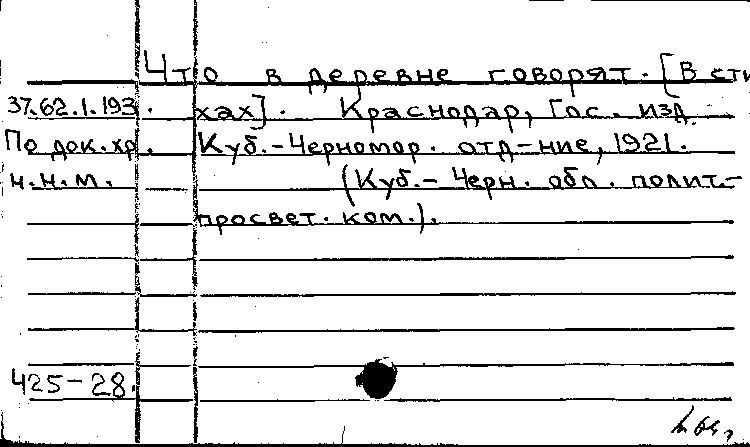 Что в деревне говорят. [В сти
37.62.1.193. хах]. Краснодар, Гос. изд.
По док. хр. Куб.-Черномор. отд-ние, 1921.
н.н.м. (Куб.- Черн. обл. полит.-
просвет. ком.).
425-28.